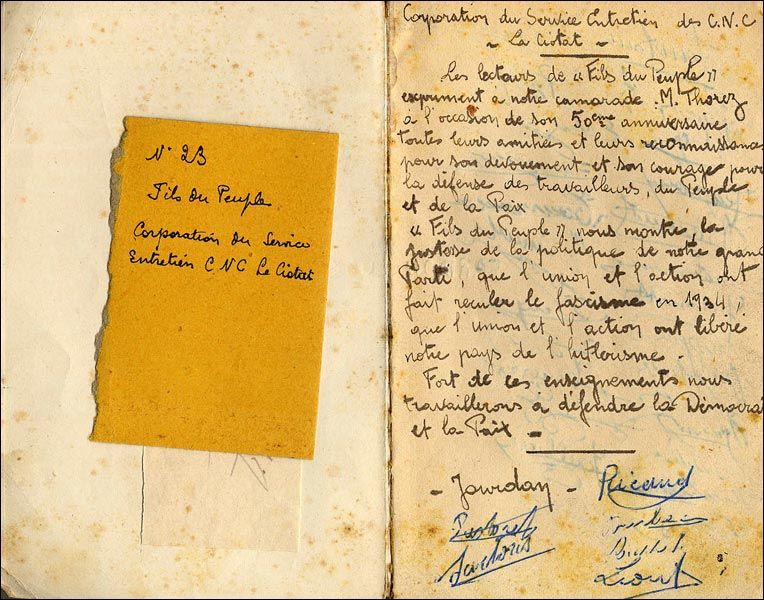 N° 23
Fils du Peuple
Corporation du Service
Entretien C N C La Ciotat
Corporation du Service Entretien des C.N.C
- La Ciotat -
Les lecteurs de « Fils du Peuple »
expriment à notre camarade M. Thorez
à l'occasion de son 50ème anniversaire
toutes leurs amitiés et leurs reconnaissances
pour son dévouement et son courage pour
la défense des travailleurs, du Peuple
et de la Paix
« Fils du Peuple » nous montre, la
justesse de la politique de notre grand
Parti, que l'union et l'action ont
fait reculer le fascisme en 1934,
que l'union et l'action ont libéré
notre pays de l'hitlérisme.
Fort de ces enseignements nous
travaillerons à défendre la Démocrat
et la Paix -
- Jourdan - Ricaud